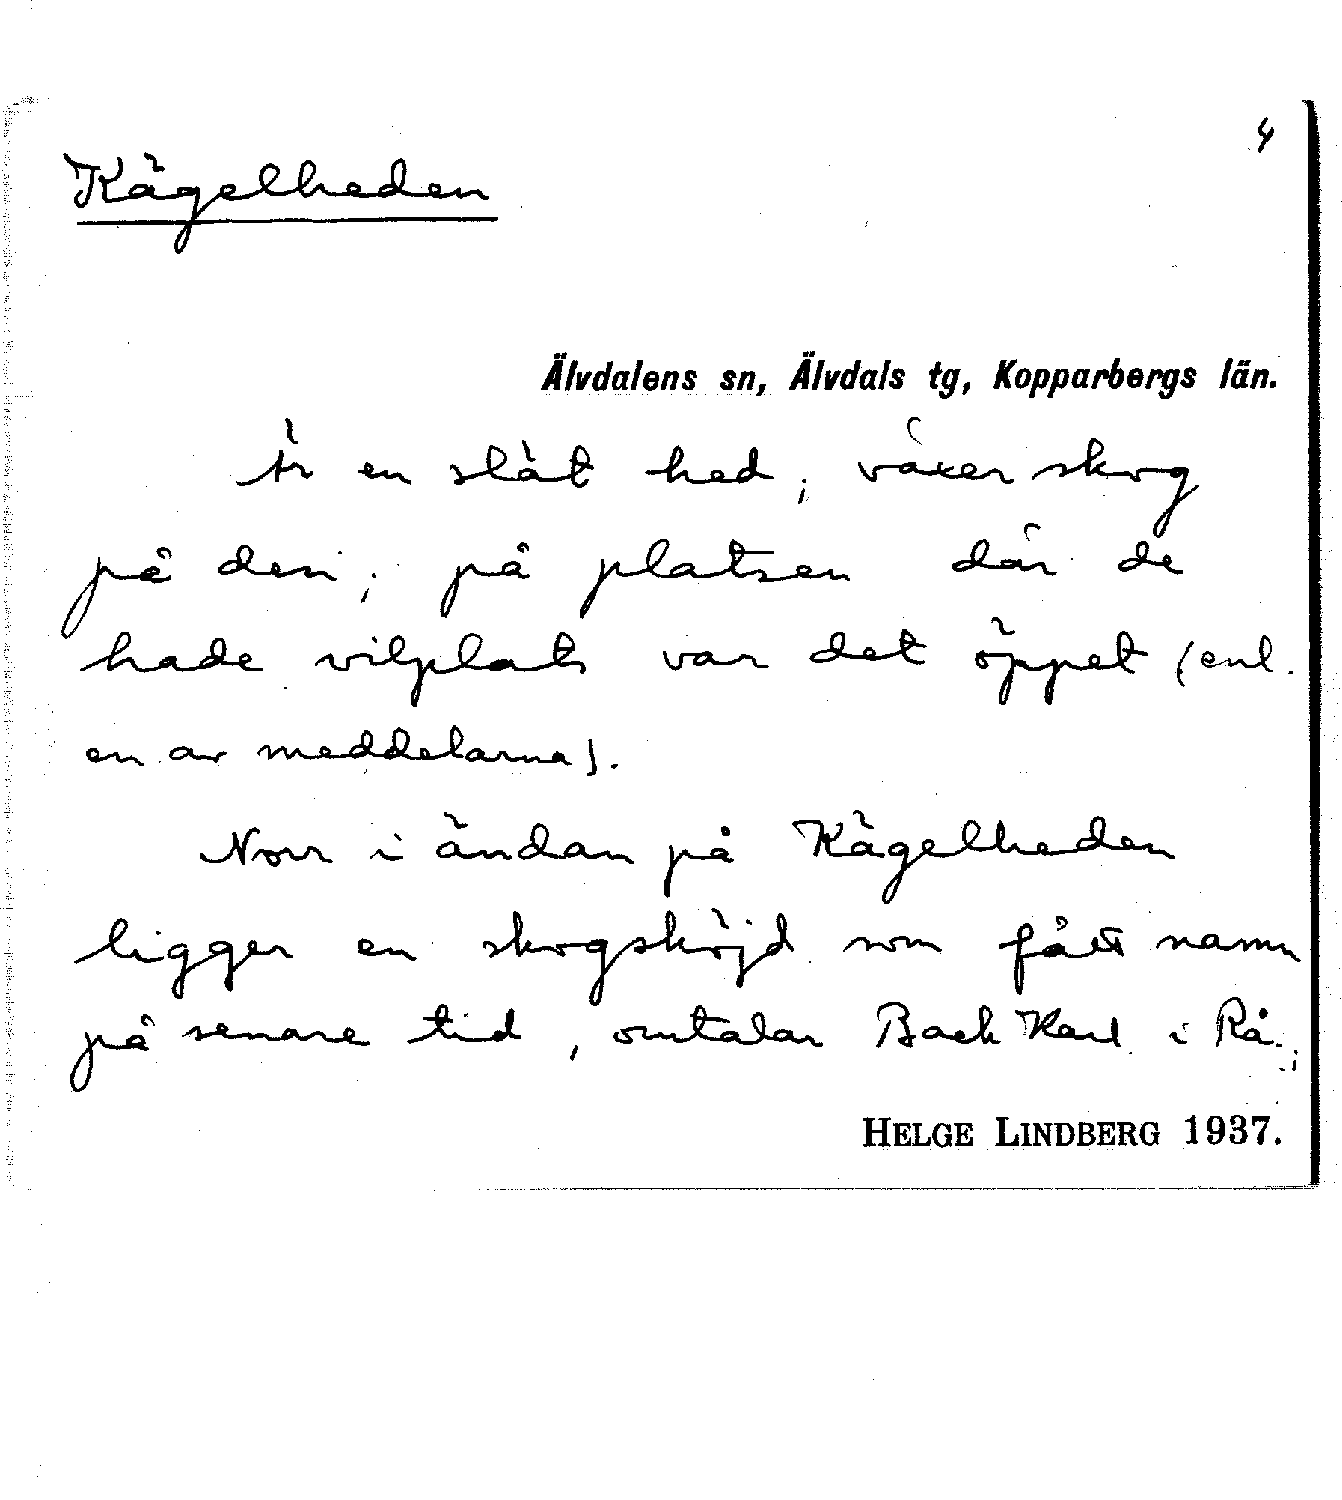 4
Kägelheden
Älvdalens sn, Älvdals tg, Kopparbergs län.
Är en slät hed; växer skog
på den; på platsen där de
hade vilplats var det öppet (enl.
en av meddelarna).
Norr i ändan på Kägelheden
ligger en skogshöjd som fått namn
på senare tid, omtalar Back Karl i Rå.;
HELGE LINDBERG 1937.